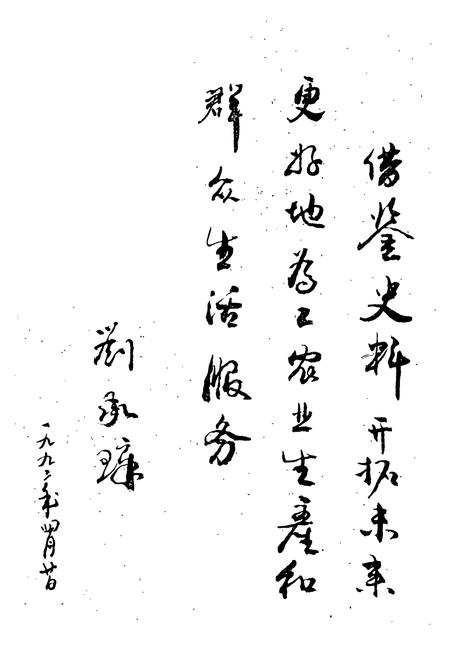 借鉴史料开拓未来
更好地為工农业生產和
群众生活服务
劉承
一九九二年四月廿日